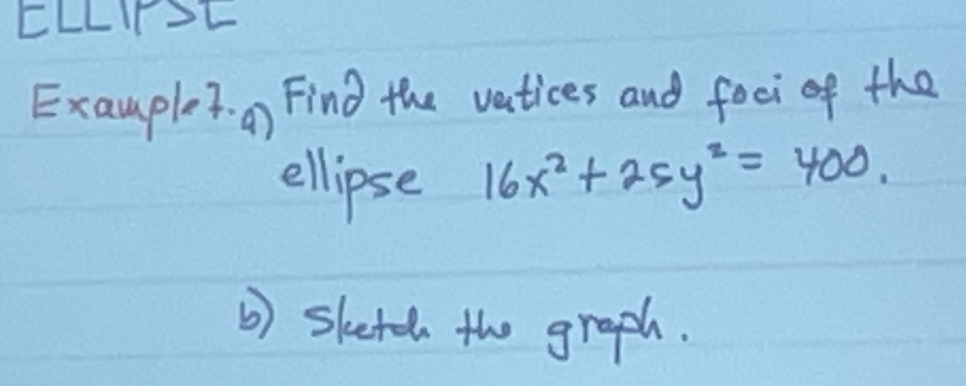 ELLIPSE
Example 7. a) Find the vertices and foci of the
ellipse 16x² + 25y² = 400.
b) Sketch the graph.